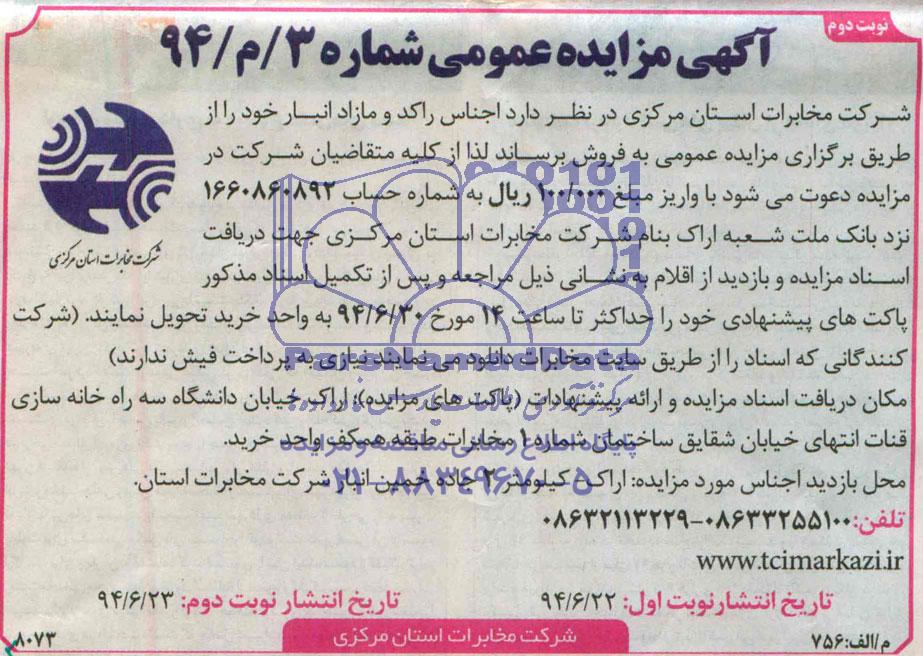 نوبت دوم
آگهی مزایده عمومی شماره ۳/م/۹۴
شرکت مخابرات استان مرکزی در نظر دارد اجناس راکد و مازاد انبار خود را از
طریق برگزاری مزایده عمومی به فروش برساند لذا از کلیه متقاضیان شرکت در
مزایده دعوت می شود با واریز مبلغ ۱۰۰/۰۰۰ ریال به شماره حساب ۱۶۶۰۸۶۰۸۹۲
نزد بانک ملت شعبه اراک بنام شرکت مخابرات استان مرکزی جهت دریافت
اسناد مزایده و بازدید از اقلام به نشانی ذیل مراجعه و پس از تکمیل اسناد مذکور
پاکت های پیشنهادی خود را حداکثر تا ساعت ۱۴ مورخ ۹۴/۶/۳۰ به واحد خرید تحویل نمایند. (شرکت
کنندگانی که اسناد را از طریق سایت مخابرات دانلود می نمایند نیازی به پرداخت فیش ندارند)
مکان دریافت اسناد مزایده و ارائه پیشنهادات (پاکت های مزایده): اراک خیابان دانشگاه سه راه خانه سازی
قنات انتهای خیابان شقایق ساختمان شماره ۱ مخابرات طبقه همکف واحد خرید.
محل بازدید اجناس مورد مزایده: اراک- کیلومتر ۲ جاده خمین انبار شرکت مخابرات استان.
تلفن: ۰۸۶۳۳۲۵۵۱۰۰-۰۸۶۳۲۱۱۳۲۲۹
www.tcimarkazi.ir
تاریخ انتشار نوبت اول: ۹۴/۶/۲۲
تاریخ انتشار نوبت دوم: ۹۴/۶/۲۳
م/الف: ۷۵۶
شرکت مخابرات استان مرکزی
۸۰۷۳
شرکت مخابرات استان مرکزی
ParsNamadData
پایگاه اطلاع رسانی مناقصه و مزایده
۰۲۱-۸۸۳۴۹۶۷۰-۵